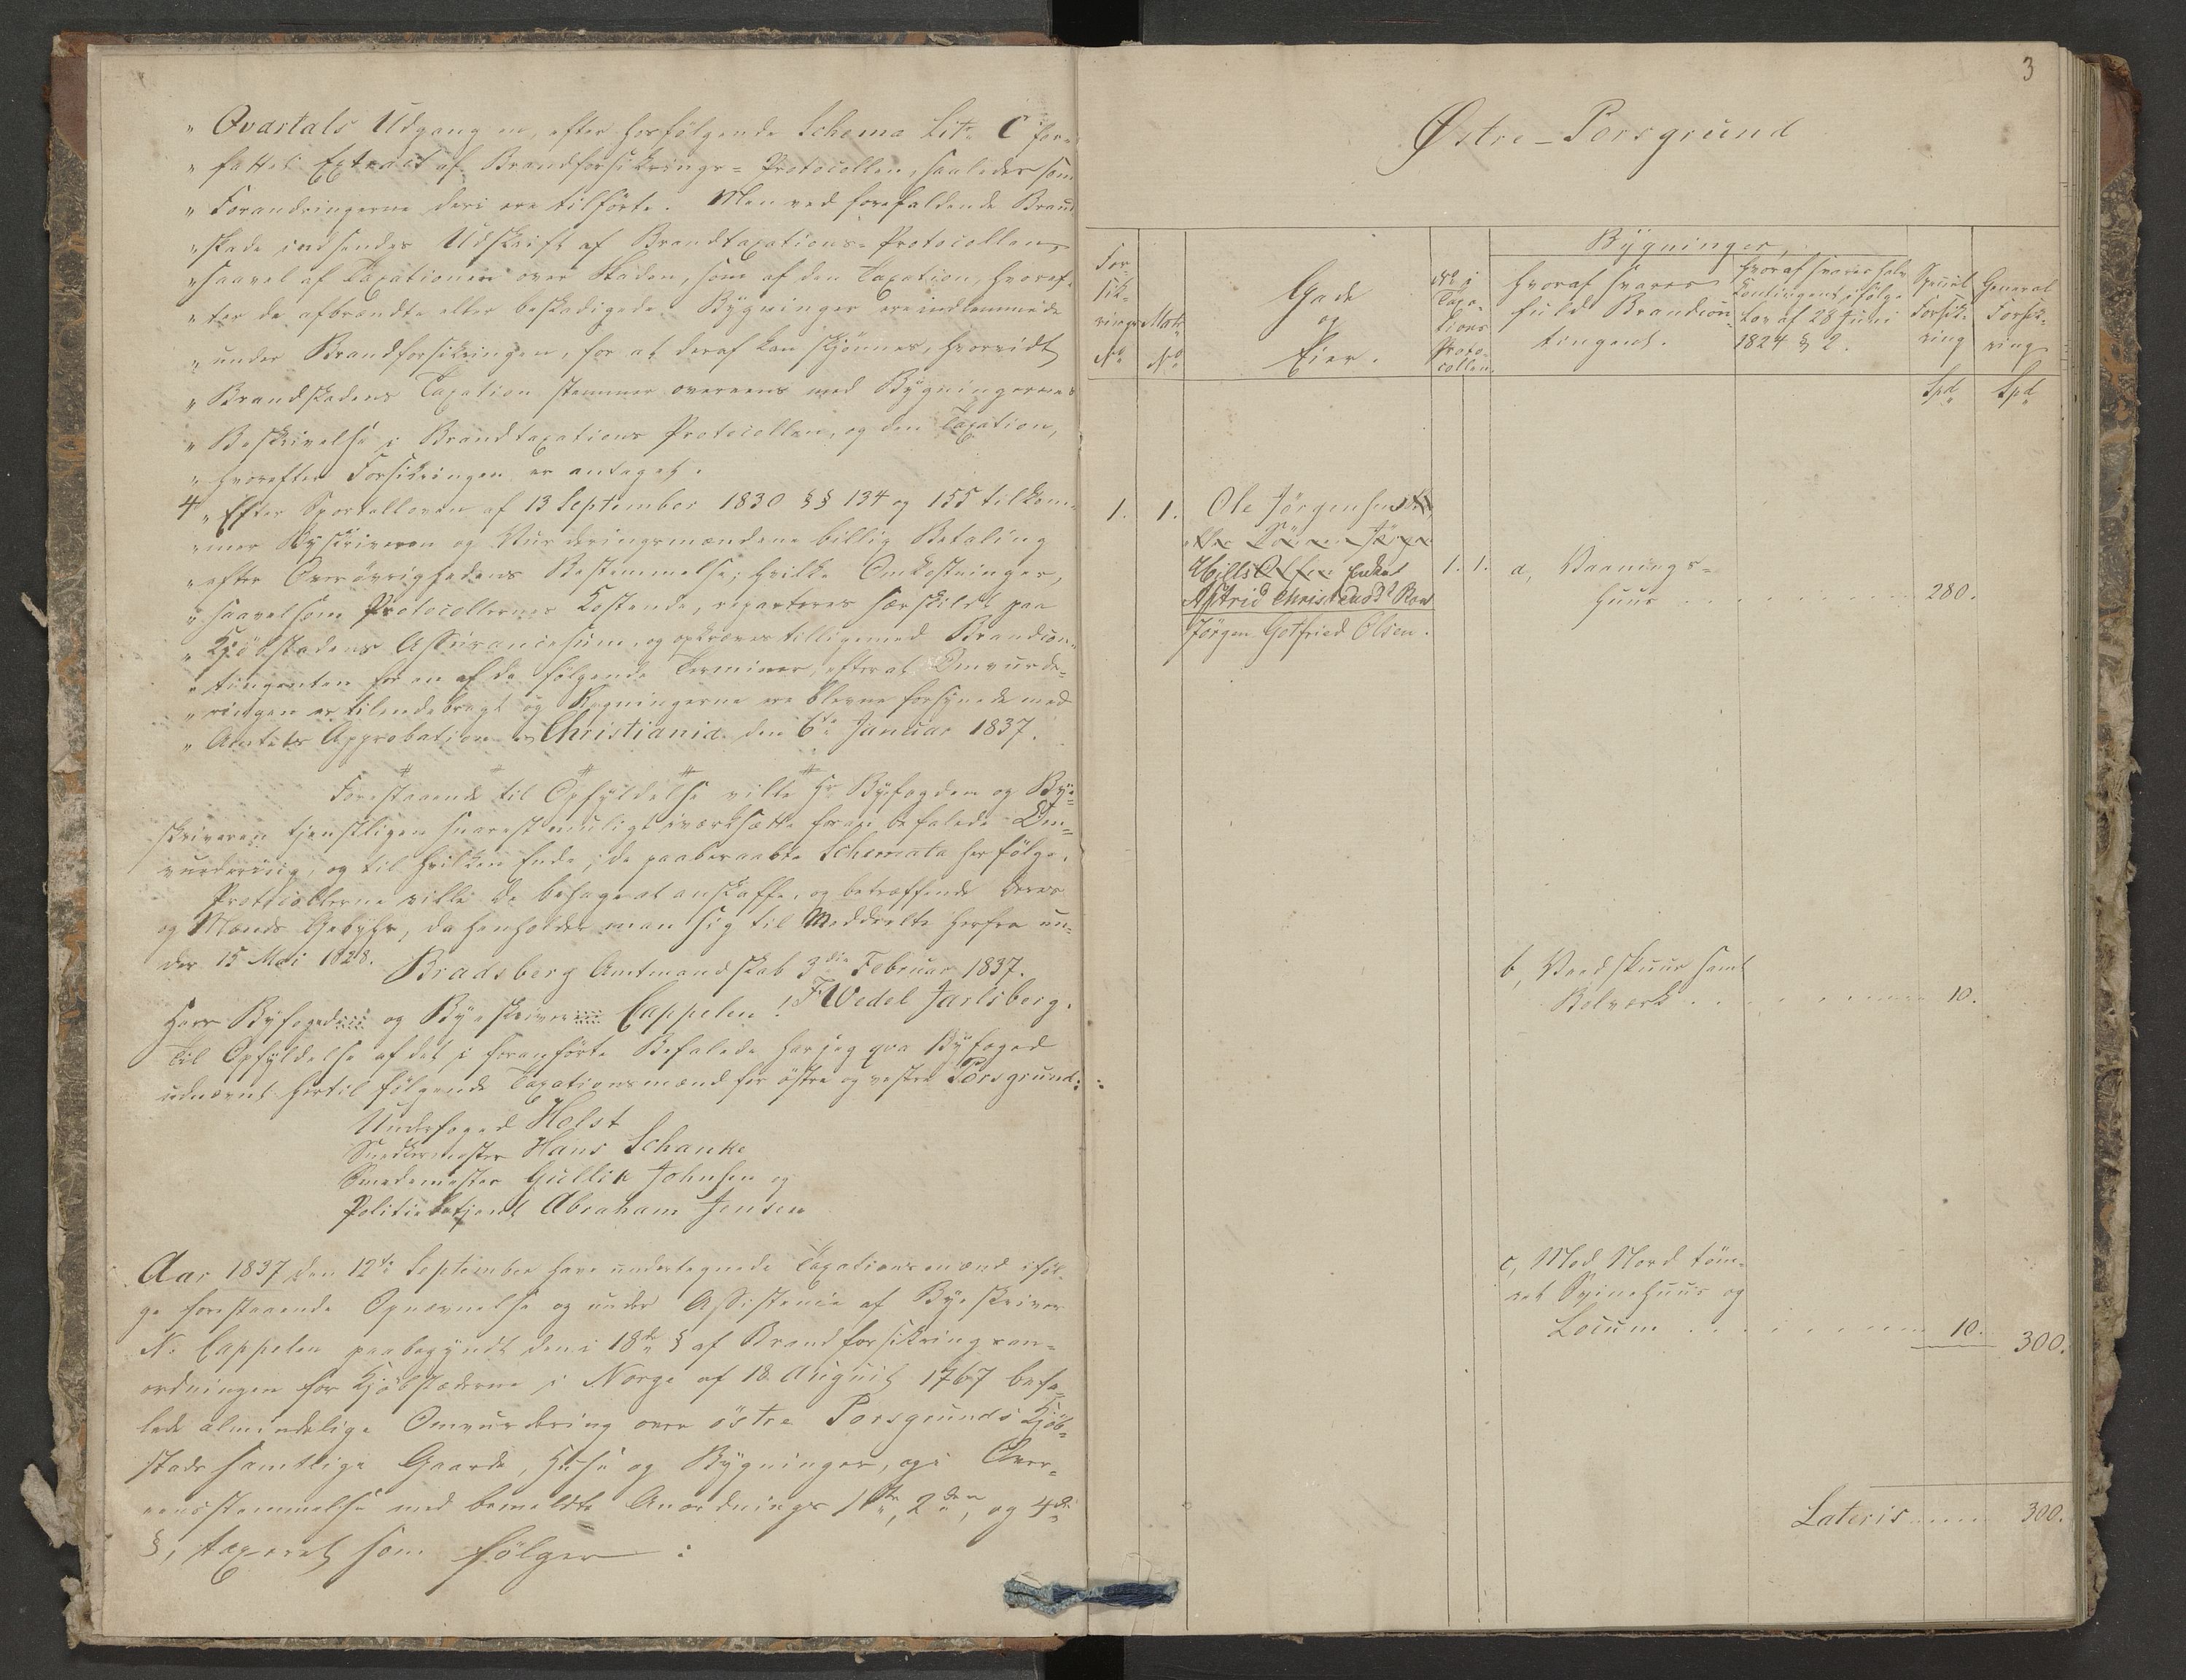 " Qvartals Udgang en, efter hosfølgende Schema Litr C for-
" fattet Extract af Brandforsikrings-Protocollen, saaledes som
" Forandringerne deri ere tilførte. Men ved forefaldende Brand-
" skade indsendes Udskrift af Brandtaxations-Protocollen,
" saavel af Taxationen over Skaden, som af den Taxation, hvoref-
" ter de afbrændte eller beskadigede Bygninger ere indlemmede
" under Brandforsikringen, for at deraf kan skjønnes, hvorvidt
" Brandskadens Taxation stemmer overeens med Bygningernes
" Beskrivelse i Brandtaxations Protocollen, og den Taxation,
" hvorefter Forsikringen er antaget.
4 " Efter Sportelloven af 13 September 1830 §§ 134 og 155 tilkom-
" mer Byskriveren og Vurderingsmændene billig Betaling
" efter Overøvrighedens Bestemmelse; hvilke Omkostninger,
" saavelsom Protocollernes Kostende, reparteres særskildt paa
" Kjøbstadens Assurancesum, og opkræves tilligemed Brandcon-
" tingenten for en af de følgende Terminer, efterat Omvurde-
" ringen er tilendebragt og Regningerne ere blevne forsynede med
" Amtets Approbation. Christiania den 6te Januar 1837.
Forestaaende til Opfyldelse ville Hr Byfogden og Bye-
skriveren tjenstligen snarest muligt iværksætte foran befalede Om-
vurdering, og til hvilken Ende de paaberaabte Schemata herfølge.
Protocollerne ville De behage at anskaffe, og betræffende Deres
og Mænds Gebyhr, da henholder man sig til Meddeelte herfra un-
der 15 Mai 1828. Bradsberg Amtmandskab 3die Februar 1837.
F Wedel Jarlsberg.
Herr Byfoged og Byeskriver Cappelen!
Til Opfyldelse af det i foranførte Befalede har jeg qva Byfoged
udnævnt hertil følgende Taxationsmænd for østre og vestre Porsgrund:
Underfoged Holst
Snedkermester Hans Schanke
Smedemester Gullik Johnsen og
Politiebetjent Abraham Jensen
Aar 1837 den 12te September have undertegnede Taxationsmænd iføl-
ge forestaaende Opnævnelse og under Assistence af Byeskriver
N. Cappelen paabegyndt den i 18de § af Brandforsikringsan-
ordningen for Kjøbstæderne i Norge af 18 August 1767 befa-
lede almindelige Omvurdering over østre Porsgrunds Kjøb-
stads samtlige Gaarde, Huse og Bygninger, og i Over-
eensstemmelse med bemeldte Anordnings 1ste, 2den, og 4de
§, taxeret som følger:
3
Østre-Porsgrund
For-
sik-
rings
No
Matr
No
Gade
og
Eier.
No i
Taxa-
tions
Proto-
collen.
Bygninger,
hvoraf svares
fuld Brandcon-
tingent.
hvoraf svares halv
Contingent ifølge
Lov af 28 Juni
1824 § 2.
Speciel
Forsik-
ring
General
Forsik-
ring
Spd
Spd
1. 1. Ole Jørgensen
Enke
Astrid Christensdt
Jørgen Gotfried Olsen.
1. 1. a, Vaanings-
huus 280.
b, Vedskuur samt
Bolværk 10.
c, Mod Nord tøm-
ret Sviinehuus og
Locum 10. 300.
Lateris 300.